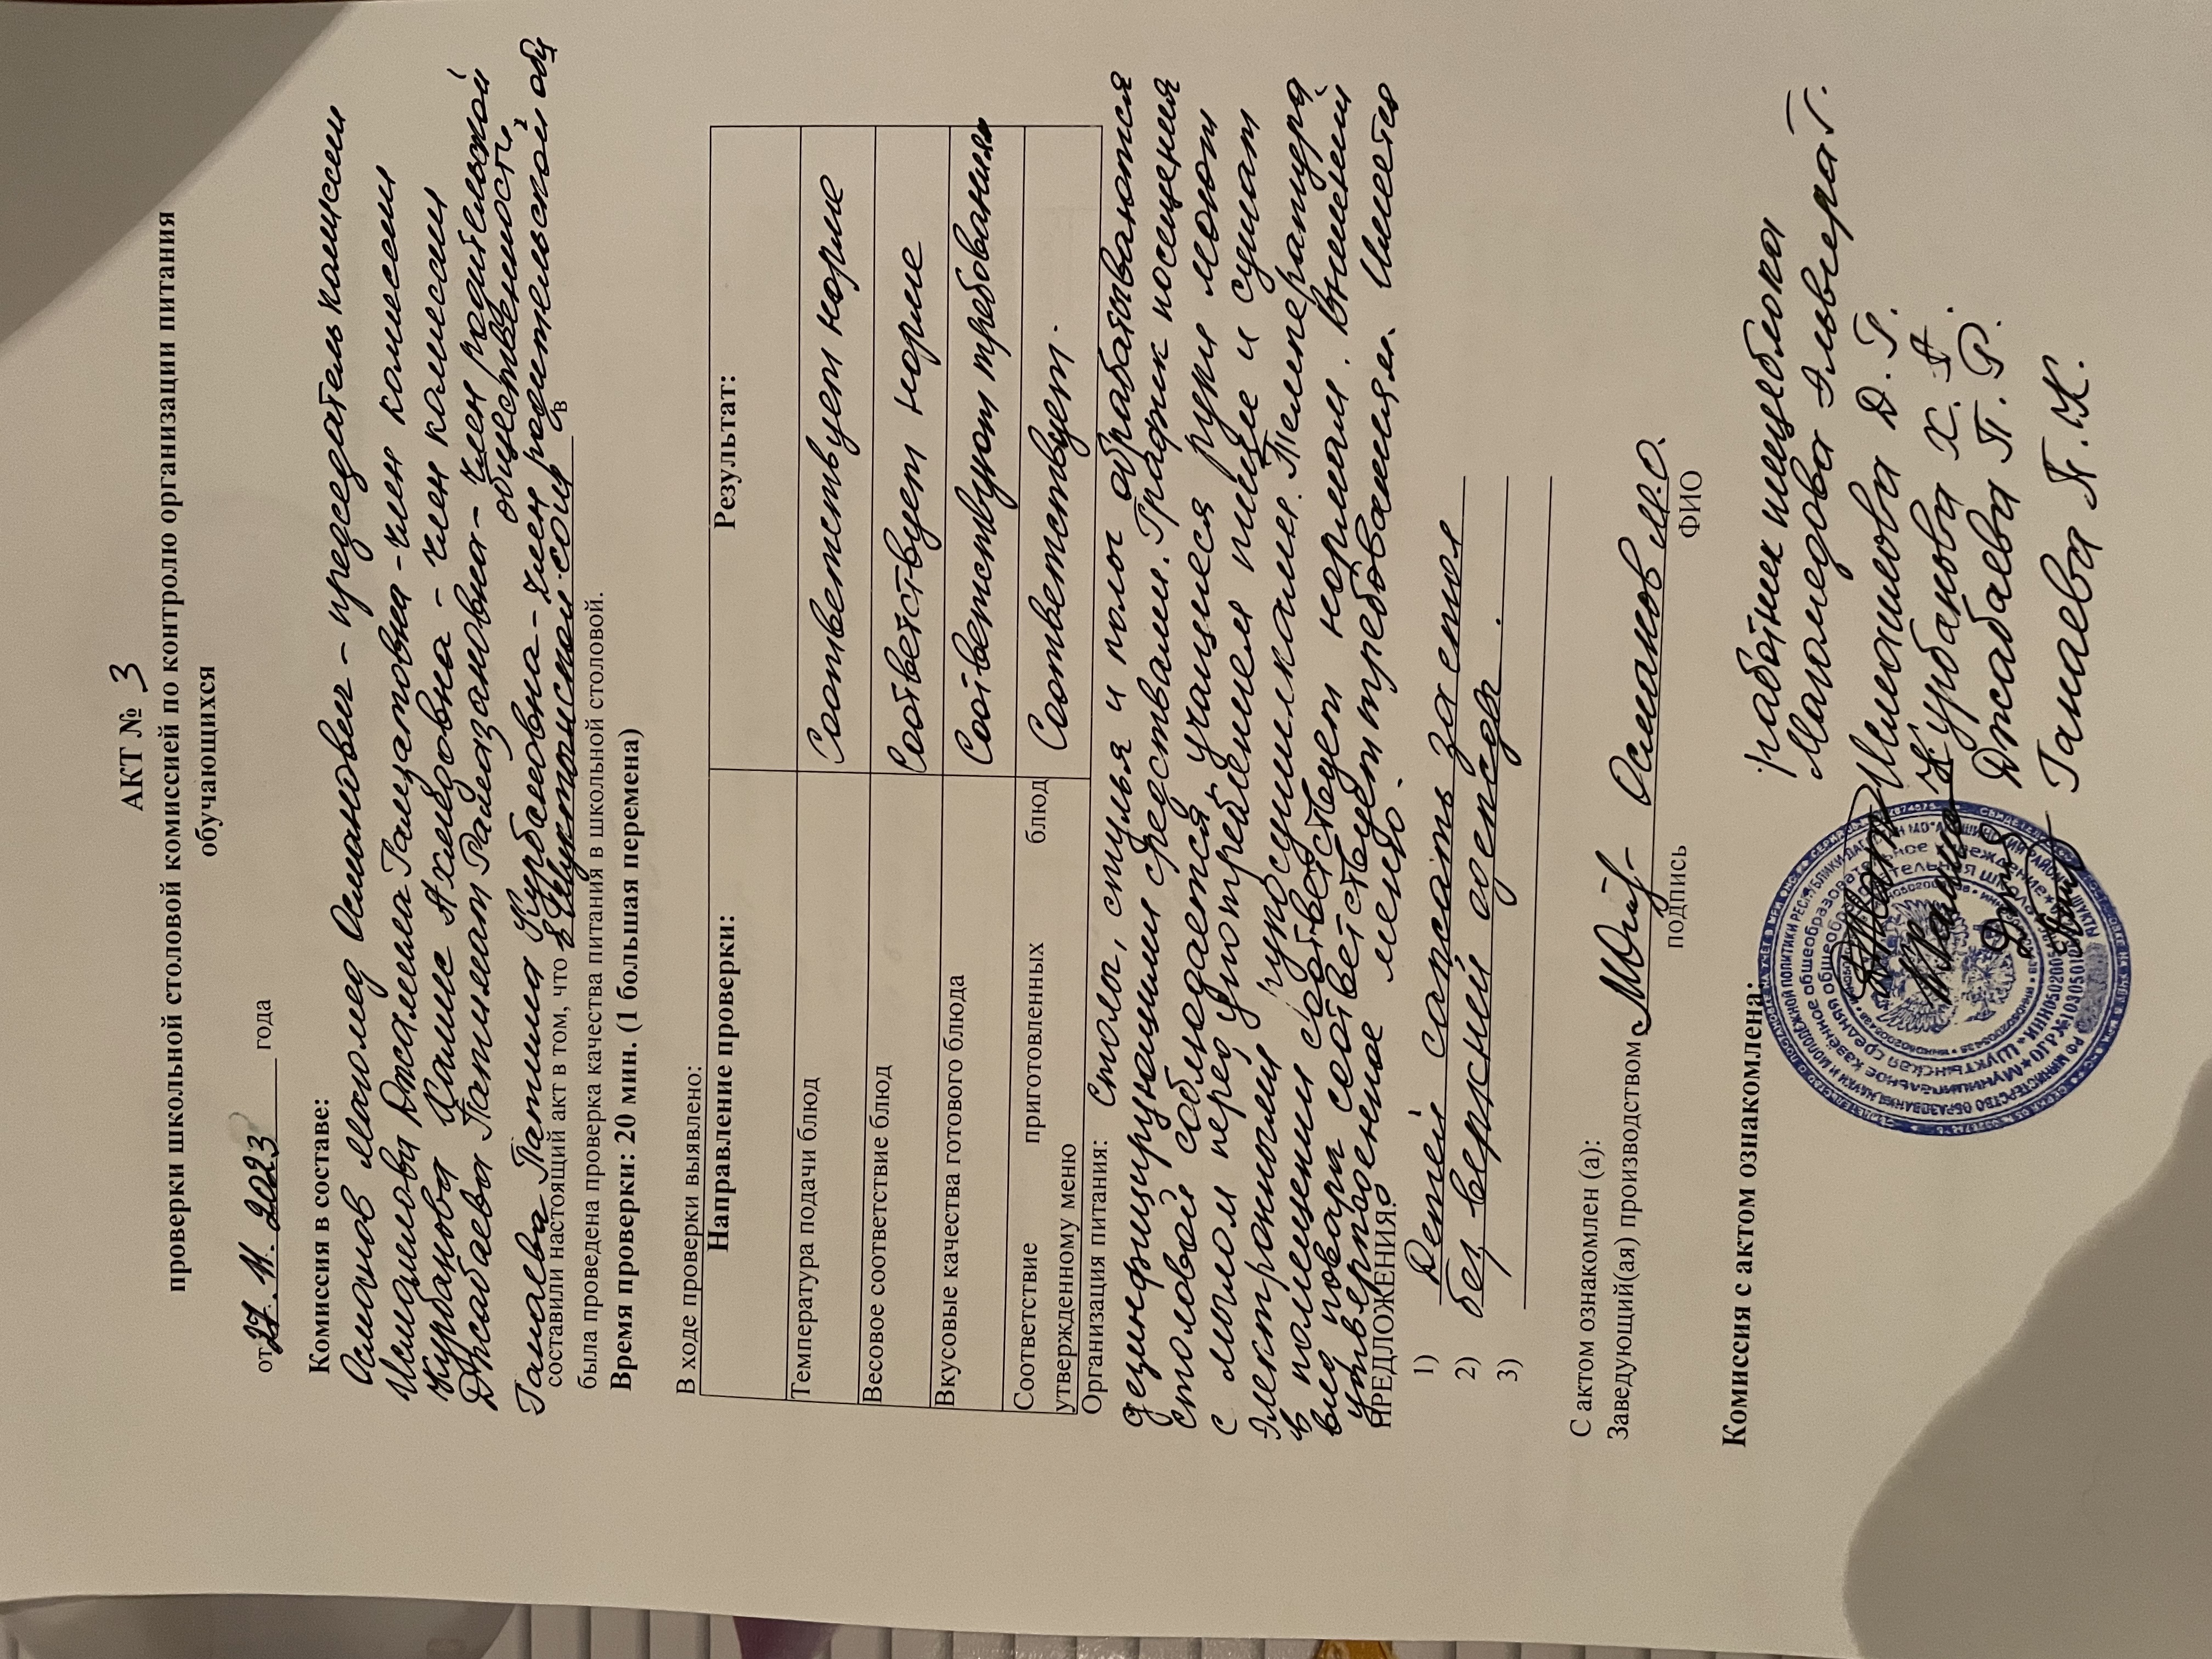 АКТ № 3
проверки школьной столовой комиссией по контролю организации питания
обучающихся
от 27. 11. 2023 года
Комиссия в составе:
Османов Магомед Османович - председатель комиссии
Исмаилова Джамиля Гамматовна - член комиссии
Курбанова Хамис Ахмедовна - член комиссии
Джабаева Патимат Рамазановна - член родительской
общественности,
Ганаева Патима Курбановна - член родительской общ
составили настоящий акт в том, что в Шуктынской сош в
была проведена проверка качества питания в школьной столовой.
Время проверки: 20 мин. (1 большая перемена)
В ходе проверки выявлено:
Направление проверки: Результат:
Температура подачи блюд Соответствует норме
Весовое соответствие блюд Соответствует норме
Вкусовые качества готового блюда Соответствуют требованиям
Соответствие приготовленных блюд утвержденному меню Соответствует.
Организация питания: Столы, стулья и полы обрабатываются
дезинфицирующими средствами. График посещения
столовой соблюдается учащиеся руки моют
с мылом перед употреблением пищи и сушат
электронными рукосушилками. Температура
в помещении соответствует нормам. Внешний
вид повара соответствует требованиям. Имеется
утвержденное меню.
ПРЕДЛОЖЕНИЯ:
1) Детей сажать за стол
2) без верхней одежды.
3)
С актом ознакомлен (а):
Заведующий(ая) производством Османов М.О.
подпись ФИО
Комиссия с актом ознакомлена:
работник пищеблока
Магомедова Эльвира Г.
Исмаилова Д. Г.
Курбанова Х. А.
Джабаева П. Р.
Ганаева П. К.